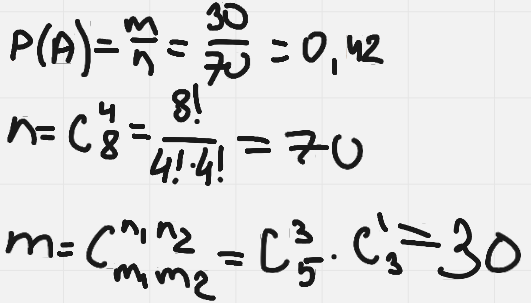 P(A) = m/n = 30/70 = 0,42
n = C₈⁴ = 8!/(4!·4!) = 70
m = C_{m₁ m₂}^{n₁ n₂} = C₅³ · C₃¹ = 30